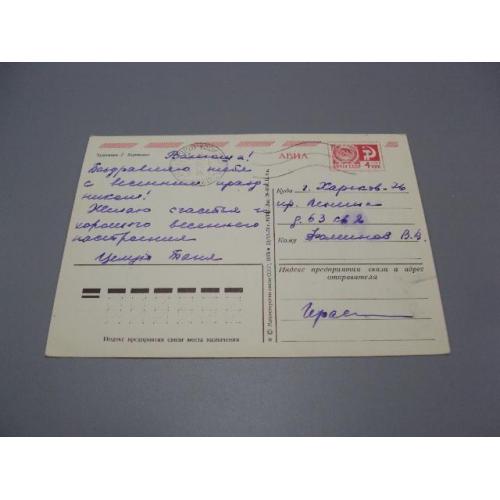 Художник Г.
АВИА
ПОЧТА СССР
4 коп
Валюша!
Поздравляю тебя
с весенним празд
ником!
Желаю счастья и
хорошего весеннего
настроения
Целую Таня
Куда г. Харьков-26
пр. Ленина
д. 63 кв 2
Кому В.А.
Индекс предприятия связи и адрес
отправителя
Индекс предприятия связи места назначения
© Министерство связи СССР